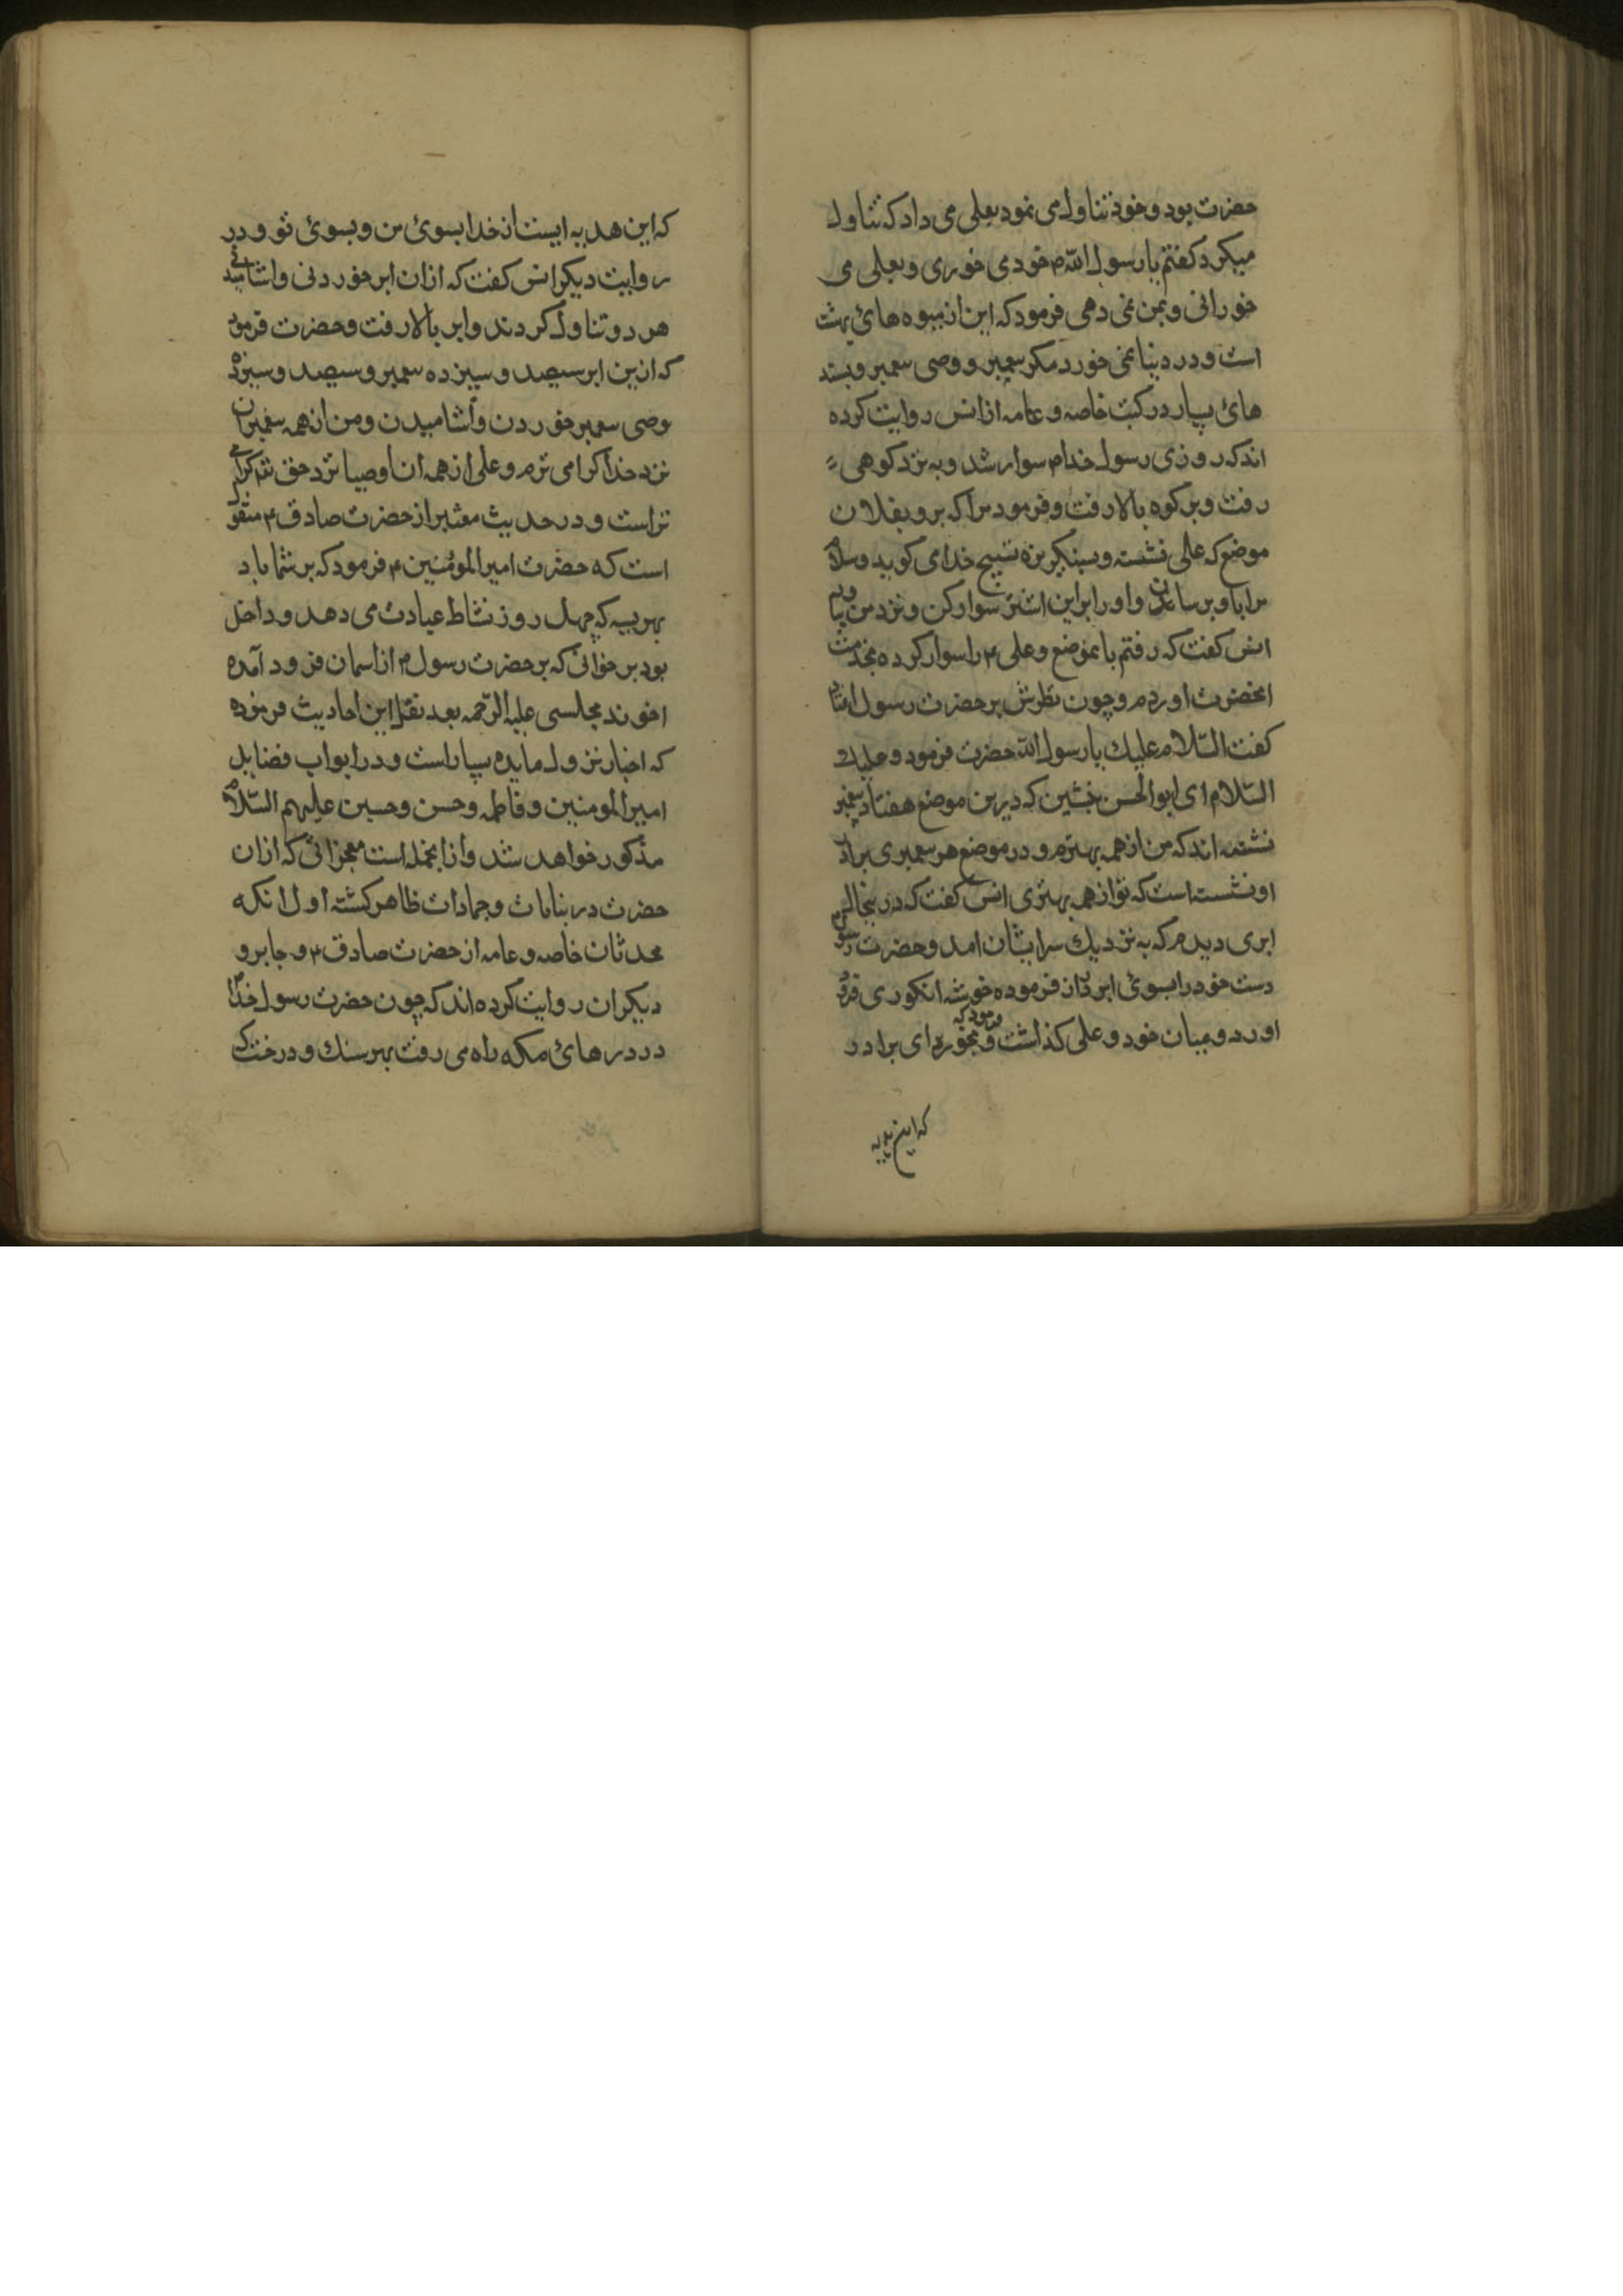 حضرت بود و خود تناول می نمود بعلی می داد که تناول
میکرد کفتم یا رسول الله م خود می خوری و بعلی می
خورانی و بمن نمی دهی فرمود که این از میوه های بهشت
است و در دنیا نمی خورد مکر پیغمبر و وصی پیغمبر و بسند
های بسیار در کتب خاصه و عامه از انس روایت کرده
اند که روزی رسول خدا م سوار شد و به نزد کوهی
رفت و بر کوه بالا رفت و فرمود مرا که برو بفلان
موضع که علی نشسته و بسنکریزه تسبیح خدا می کوید و سلام
مرا باو برسان و او را بر این اشتر سوار کن و نزد من بیاور
انس کفت که رفتم بانموضع و علی ۴ را سوار کرده بخدمت
انحضرت اوردم و چون نظرش بر حضرت رسول افتاد
کفت السّلام علیك یا رسول الله حضرت فرمود و علیك
السّلام ای ابوالحسن بنشین که درین موضع هفتاد پیغمبر
نشسته اند که من از همه بهترم و در موضع هر پیغمبری برادر
او نشسته است که تو از همه بهتری انس کفت که در اینحال
ابری دیدم که به نزدیك سر ایشان امد و حضرت رسول م
دست خود را بسوی ابر دراز فرموده خوشه انکوری فرو
اورد و میان خود و علی کذاشت و فرمود که بخور ای برادر
که این هدیه
که این هدیه ایست از خدا بسوی من و بسوی تو و در
روایت دیکر انس کفت که ازان ابر خوردنی و اشامیدنی
هر دو تناول کردند و ابر بالا رفت و حضرت فرمود
که ازین ابر سیصد و سیزده پیغمبر و سیصد و سیزده
وصی پیغمبر خوردن و آشامیدن و من از همه پیغمبران
نزد خدا کرامی ترم و علی از همه ان اوصیا نزد حق تع کرامی
تر است و در حدیث معتبر از حضرت صادق ۴ منقول
است که حضرت امیر المؤمنین ۴ فرمود که بر شما باد
بهریسه که چهل روز نشاط عبادت می دهد و داخل
بود بر خوانی که بر حضرت رسول م از اسمان فرود آمده
اخوند مجلسی علیه الرّحمه بعد نقل این احادیث فرموده
که اخبار نزول مایده بسیار است و در ابواب فضایل
امیر المومنین و فاطمه و حسن و حسین علیهم السّلام
مذکور خواهد شد و ازانجمله است معجزاتی که ازان
حضرت در نباتات و جمادات ظاهر کشته اول انکه
محدثان خاصه و عامه از حضرت صادق ۴ و جابر و
دیکران روایت کرده اند که چون حضرت رسول خدا
در درهای مکه راه می رفت بهر سنك و درخت که